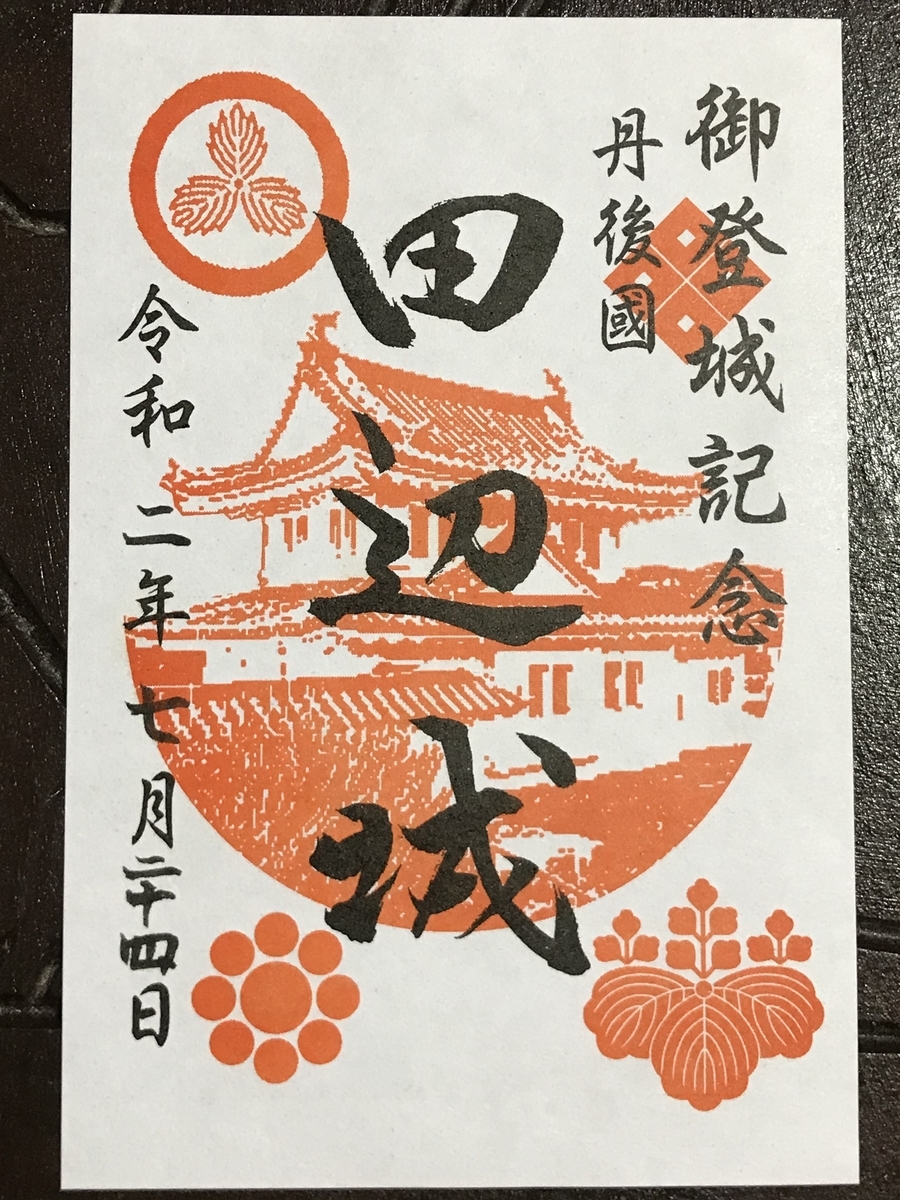 御登城記念
丹後國
田辺城
令和二年七月二十四日